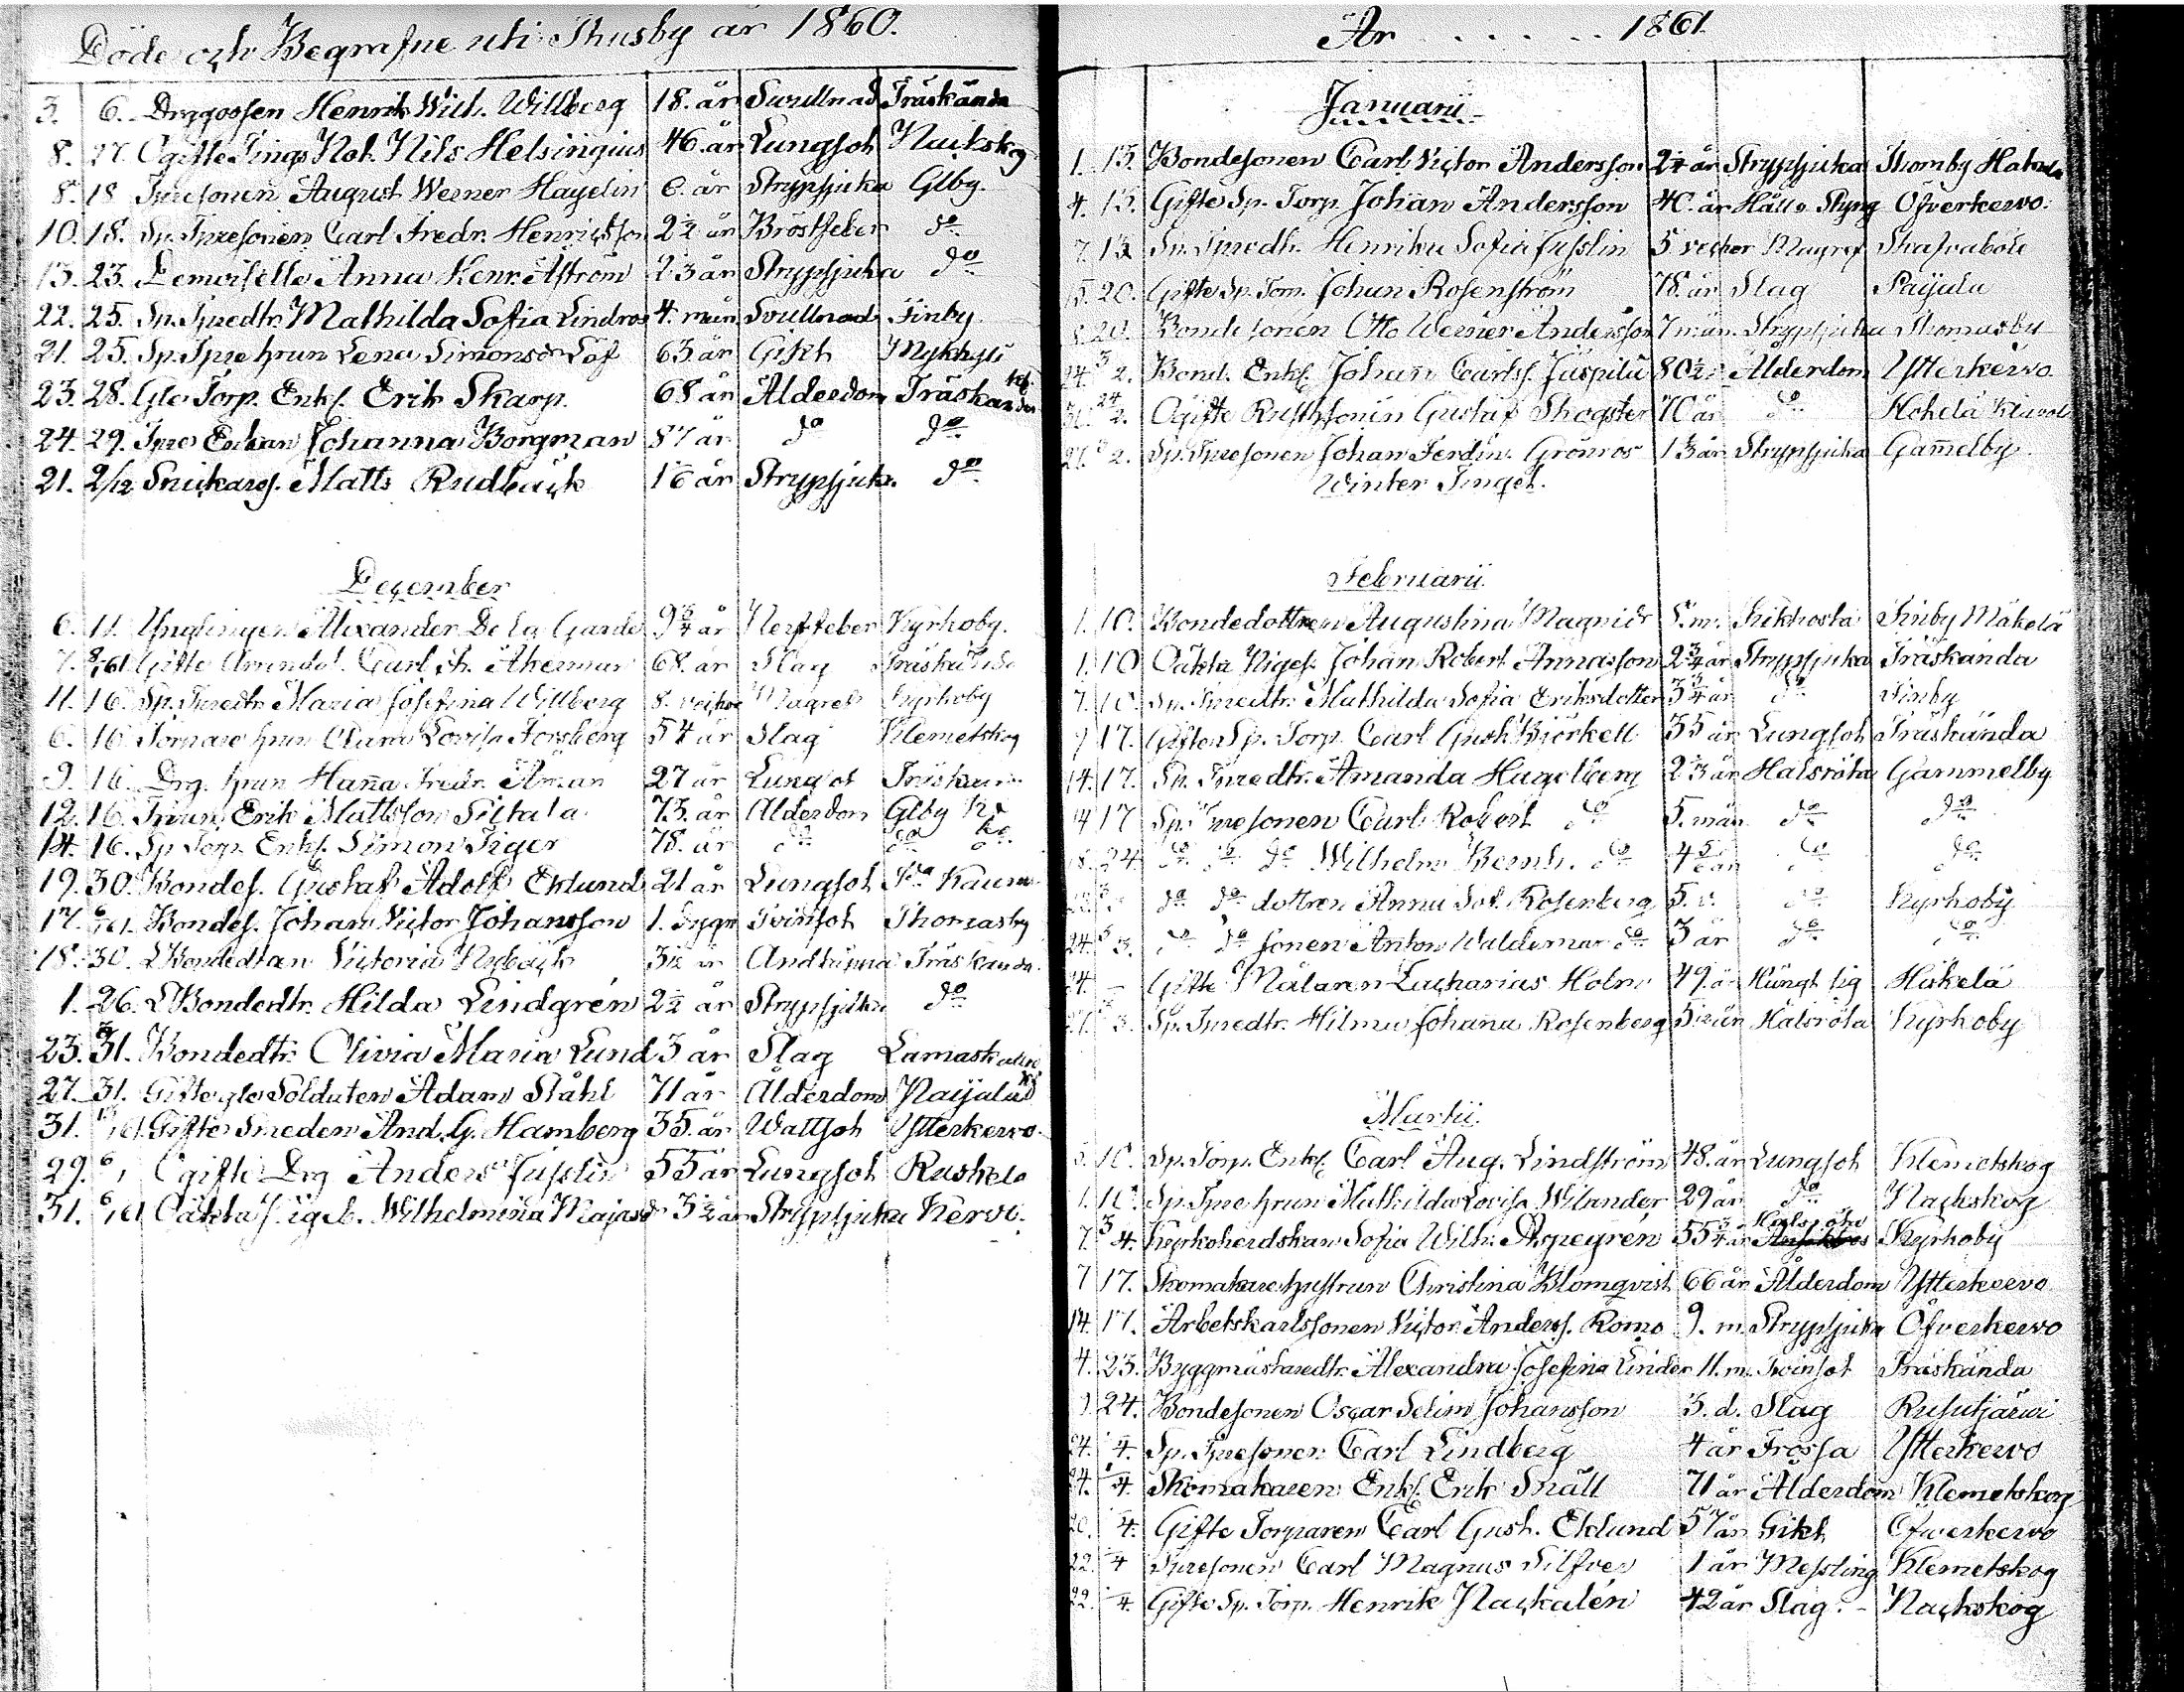 Döde och Begrafne uti Thusby år 1860.
3. 6. Drggossen Henrik Wilh. Willberg 18. år Svullnad Träskända
8. 17. Ogifte Tings Not. Nils Helsingius 46. år Lungsot Nackskog
8. 18 Inresonen August Werner Hagelin 6. år Strypsjuka Glby.
10. 18. Sp. Inresonen Carl Fredr. Henriksson 2½ år Bröstfeber do
13. 23. Demoiselle Anna Henr. Åström 23 år Strypsjuka do
22. 25. Sp. Inredtr. Mathilda Sofia Lindros 4. mån Svullnad Finby
21. 25. Sp. Inre hrun Lena Simonsdr Löf 63 år Gikt Nykkyli
23. 28. Gle Torp. Enkl. Erik Skarp. 68 år Ålderdom Träskända
24. 29. Inre Enkan Johanna Borgman 87 år do do
21. 2/12 Snickarss. Matts Rudbäck 16 år Strypsjuka do
December
6. 11. Ynglingen Alexander De la Gardie 9¾ år Nerffeber Kyrkoby.
7. 61 Gifte Carl Åkerman 68. år Slag Träskända
11. 16. Sp. Inredtr Maria Josefina Willberg 8. veckor Magref Kyrkoby
6. 16 Tornare hrun Clara Lovisa Forsberg 54 år Slag Klemetskog
9. 16. Drg. hrun Hanna Fredr. Åman 27 år Lungsot Träskända
12. 16. Erik Mattsson Siltala 73. år Ålderdom Glby
14. 16. Sp Torp. Enkl. Simon Tiger 78. år do do
19. 30. Bondes. Gustaf Adolf Eklund 21 år Lungsot
17. 61. Bondes. Johan Victor Johansson 1. dygn Tvinsot Thomasby
18. 30. Bondedtan Victoria Nybäck 3½ år Andtäppa Träskända.
1. 26. Bondedtr. Hilda Lindgrén 2½ år Strypsjuka do
23. 31. Bondedtr. Olivia Maria Lund 3 år Slag
27. 31. Gifte gle Soldaten Adam Ståhl 71 år Ålderdom Paijala
31. 61. Gifte Smeden And. G. Hamberg 35. år Wattsot Ytterkervo.
29. Ogifte Drg Anders Jusslin 55 år Lungsot Ruskela
31. 61 Oäkta Wilhelmina Majasdr 3½ år Strypsjuka Kervo.
År . . . . . 1861.
Januarii
1. 13. Bondesonen Carl Victor Andersson 2¼ år Strypsjuka Thomby
4. 13. Gifte Sp. Torp. Johan Andersson 40. år Håll o Styng Öfverkervo.
7. 13. Sp. Inredtr. Henrika Sofia Jusslin 5 veckor Magref Skafvaböle
15. 20. Gifte Sp. Torp. Johan Rosenström 78. år Slag Paijala
20. Bondesonen Otto Werner Andersson 7 mån. Strypsjuka Thomasby
24. 3/2. Bond. Enkl. Johan Carlss. Juspila 80½ Ålderdom Ytterkervo
2. Ogifte Rusthsonen Gustaf Skogster 70 år do
27. 3/2. Sp. Inresonen Johan Ferdin. Grönros 1 3 år Strypsjuka Gammelby.
Winter Tinget.
Februarii
1. 10. Bondedottren Augustina Magnidr 5. m. Kikhosta Finby Mäkelä
1. 10 Oäkta Pigos. Johan Robert Annasson 2¾ år Strypsjuka Träskända
7. 10 Sp. Inredtr. Mathilda Sofia Eriksdotter 3¾ år do Finby
9 17. Gifte Sp. Torp. Carl Gust. Björkell 35 år Lungsot Träskända
14. 17. Sp. Inredtr. Amanda Hagelberg 2 3 år Halsröta Gammelby
14 17 Sp. Inresonen Carl Robert do 5. mån do do
18. 24. do do do Wilhelm Bernh. do 4 5/6 år do do
do do dottren Anna Sof. Rosenberg 5. do Kyrkoby
24. 3/3. do do sonen Anton Waldemar do 3 år do do
24. – Gifte Målaren Zacharias Holm 49. år Hängt sig Häkelä
3. Sp. Inredtr. Hilma Johana Rosenberg Halsröta Kyrkoby
Martii.
5. 10. Sp. Torp. Enkl. Carl Aug. Lindström 48. år Lungsot Klemetskog
1. 10. Sp. Inre hrun Mathilda Lovisa Wilander 29 år do Nackskog
7. 3/4. Kyrkoherdskan Sofia Wilh. Aspegrén 55¾ år Kyrkoby
7 17. Skomakarehustrun Christina Blomqvist 66 år Ålderdom Ytterkervo
14. 17. Arbetskarlssonen Victor Anderss. Romo 9. m. Strypsjuka Öfverkervo
4. 23. Byggmästaredtr. Alexandra Josefina Linder 11. m. Tvinsot Träskända
24. Bondesonen Oscar Selim Johansson 3. d. Slag Rusutjärvi
24. 4. Sp. Inresonen Carl Lindberg 4 år Frossa Ytterkervo
24. 4 Skomakaren Enkl. Erik Snäll 71 år Ålderdom Klemetskog
20. 4. Gifte Torparen Carl Gust. Eklund 57 år Gikt Öfverkervo
22. 4 Inresonen Carl Magnus Silfver 1 år Messling Klemetskog
22. 4. Gifte Sp. Torp. Henrik Nackalén 42 år Slag. – Nackskog